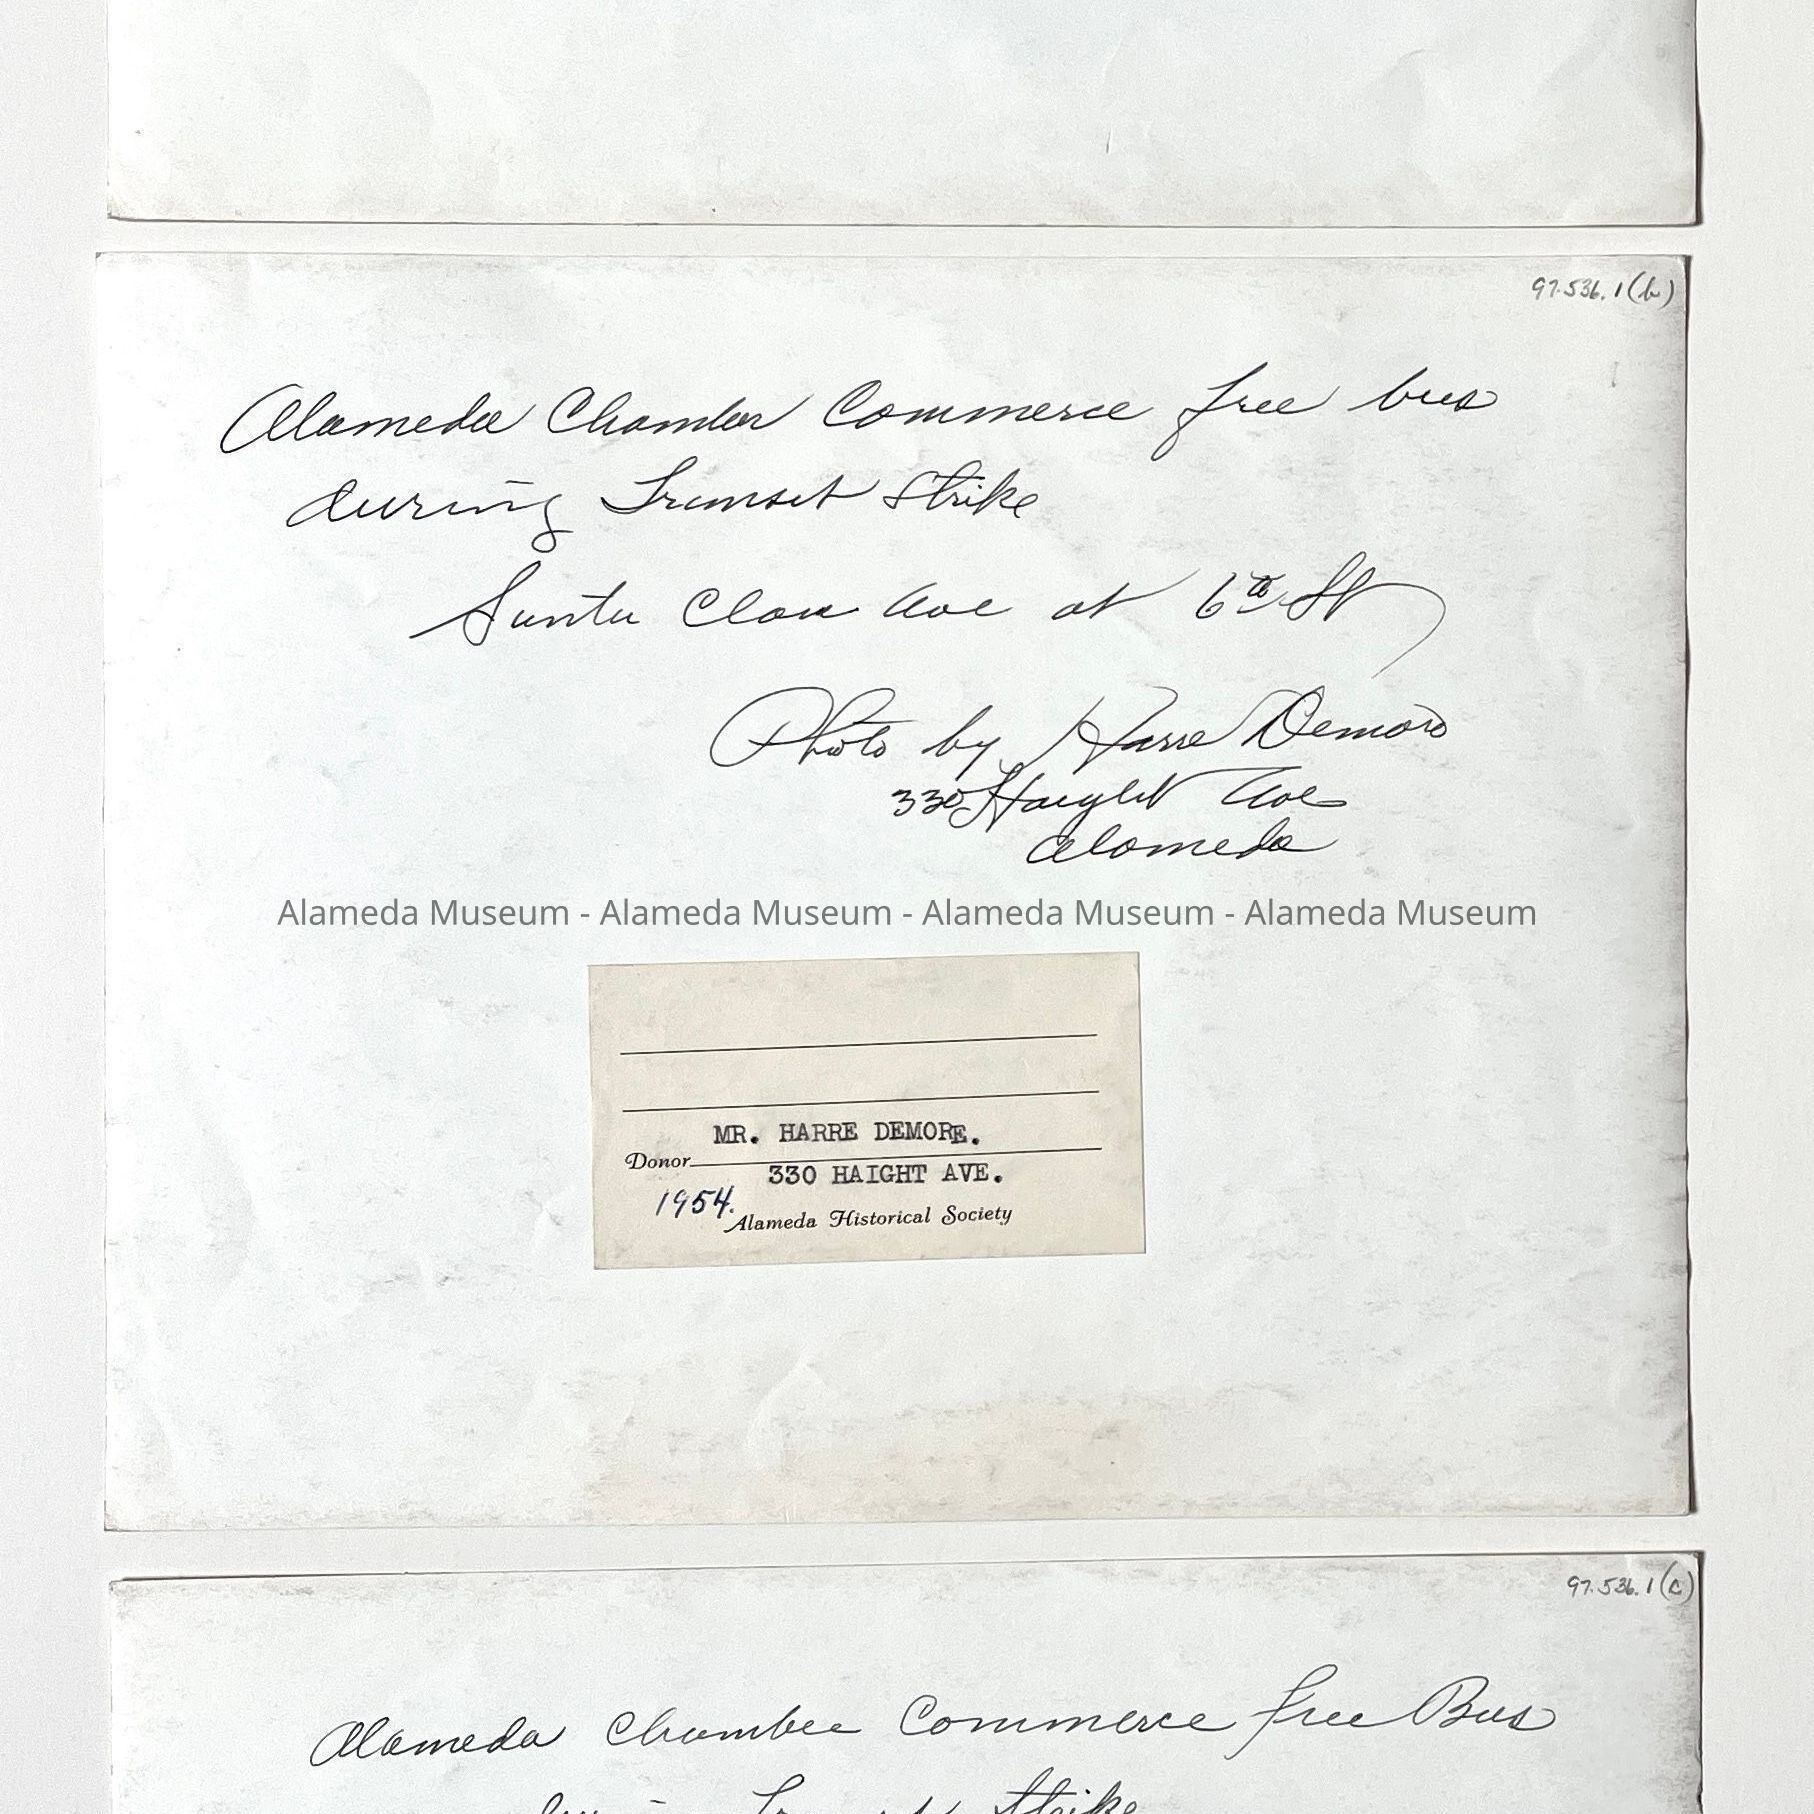 97.536.1(b)
Alameda Chamber Commerce free bus
during Transet Strike
Santa Clara Ave at 6th St
Photo by Harre Demoro
330 Haight Ave
Alameda
Alameda Museum - Alameda Museum - Alameda Museum - Alameda Museum
MR. HARRE DEMORE.
Donor
330 HAIGHT AVE.
1954.
Alameda Historical Society
97.536.1(c)
Alameda Chamber Commerce free Bus
Strike